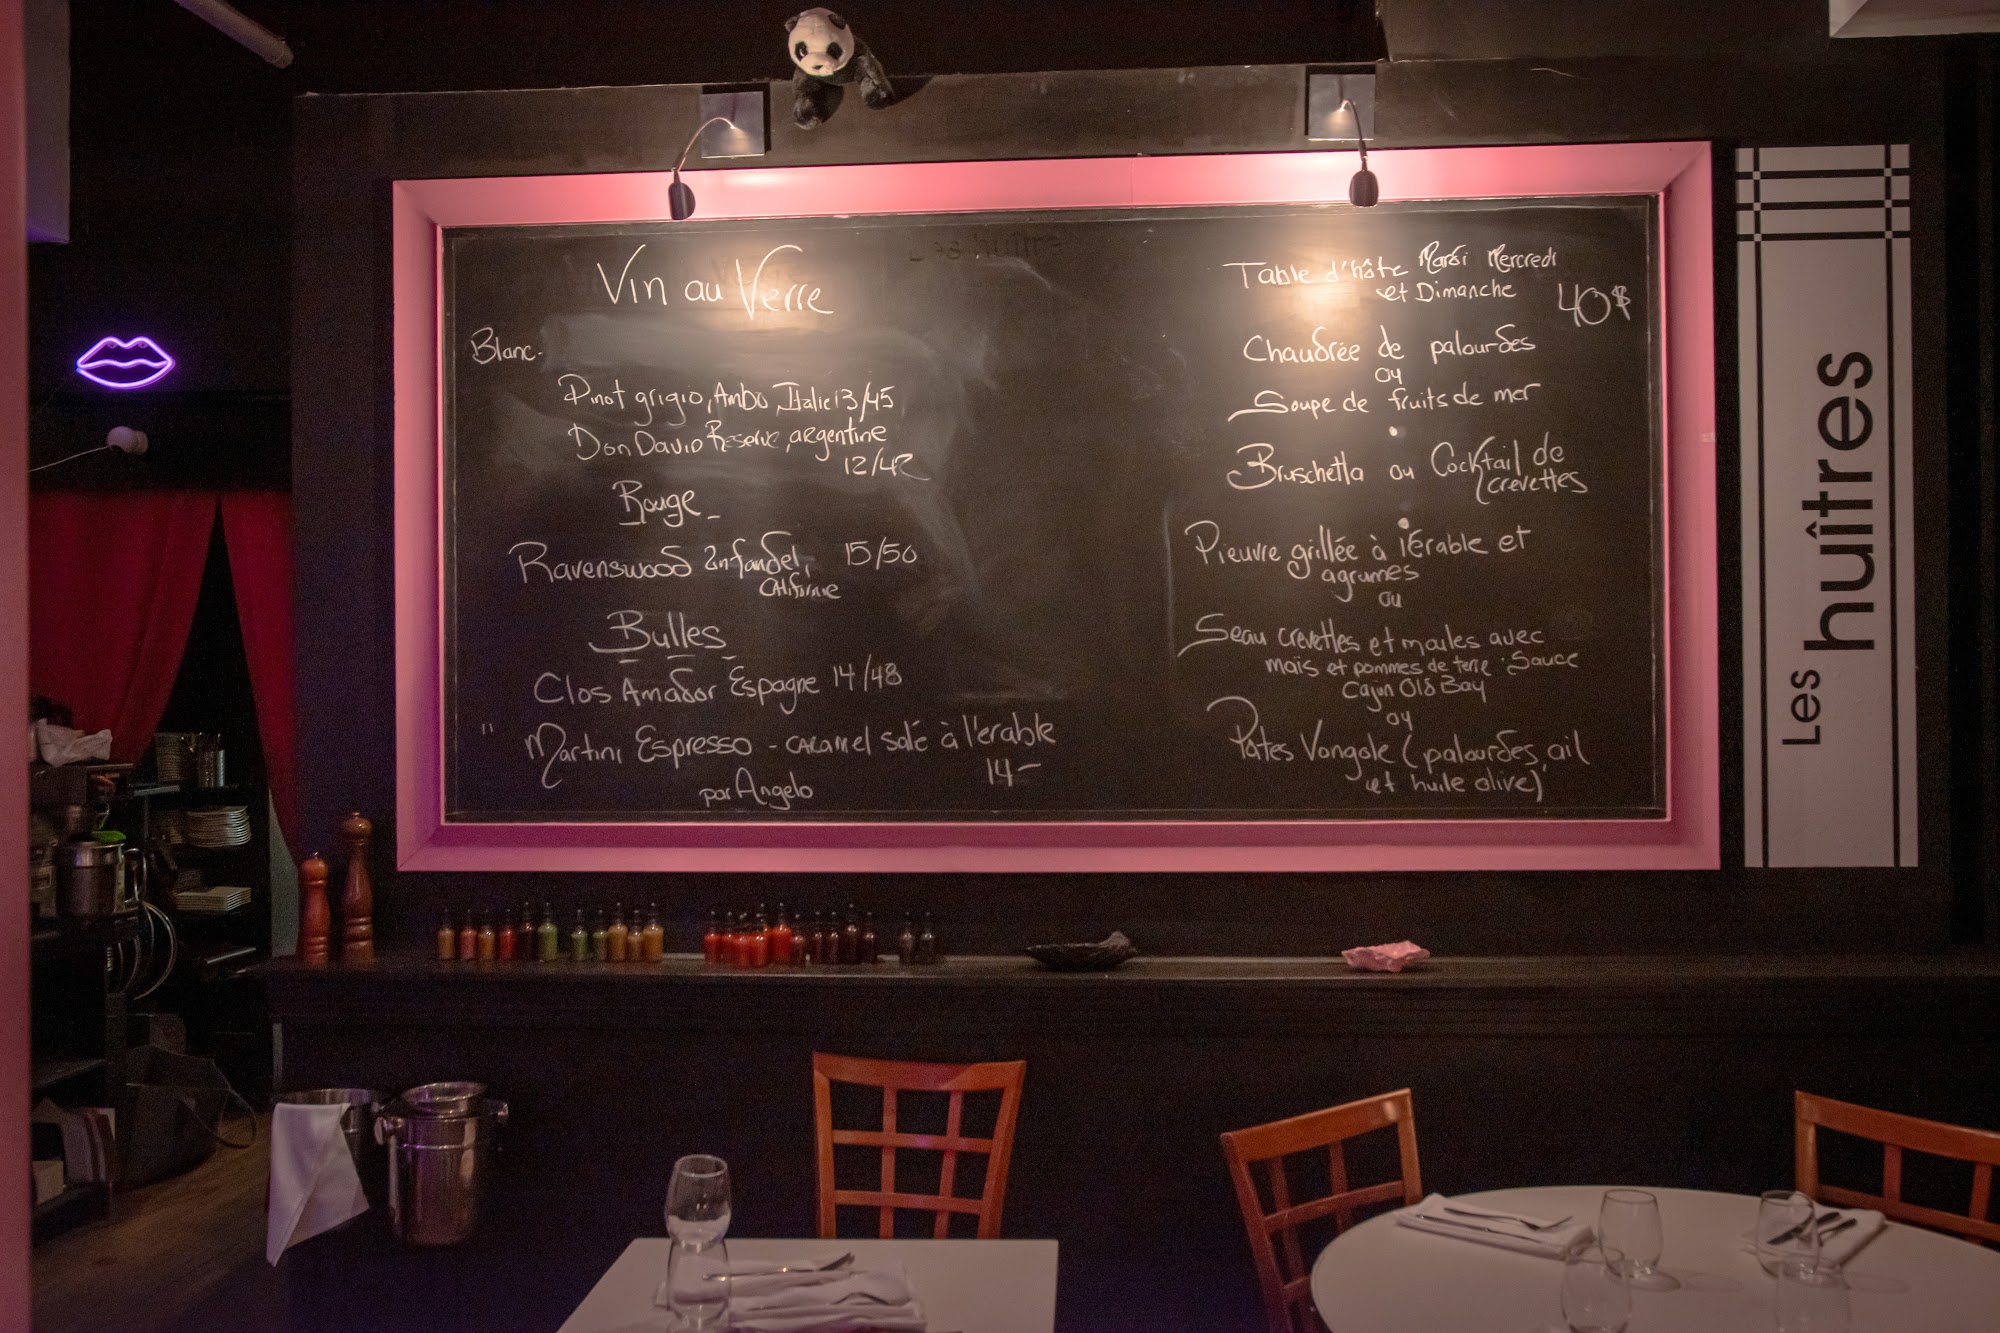 Vin au Verre
Blanc -
Pinot grigio, Ambo, Italie 13/45
Don David Reserve, argentine
12/42
Rouge -
Ravenswood Zinfandel, 15/50
Californie
Bulles
Clos Amador Espagne 14/48
" Martini Espresso - caramel salé à l'erable
14-
par Angelo
Les huître
Table d'hôte Mardi Mercredi
et Dimanche 40$
Chaudrée de palourdes
ou
Soupe de fruits de mer
Bruschetta ou Cocktail de
crevettes
Pieuvre grillée à l'Érable et
agrumes
ou
Seau crevettes et moules avec
maïs et pommes de terre. Sauce
Cajun Old Bay
ou
Pates Vongole (palourdes, ail
et huile olive)
Les huîtres